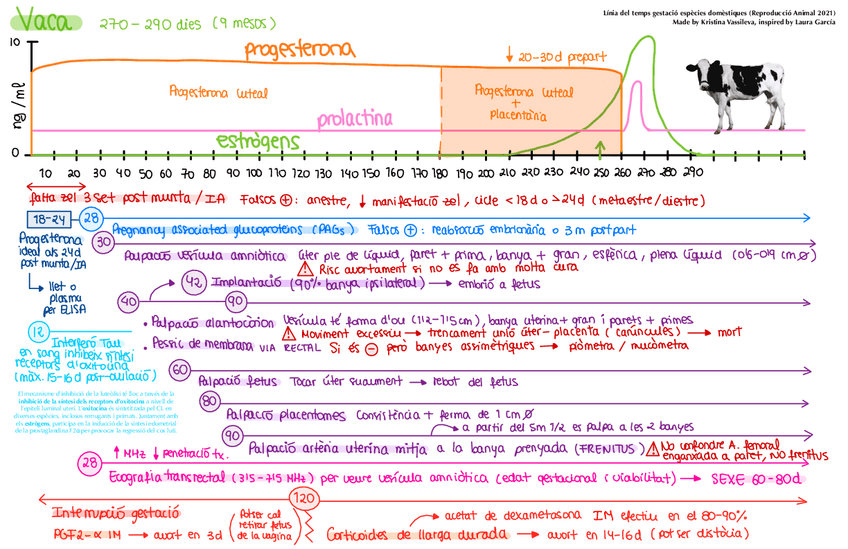 Línia del temps gestació espècies domèstiques (Reproducció Animal 2021)
Made by Kristina Vassileva, inspired by Laura García
Vaca 270-290 dies (9 mesos)
10
ng/ml
0
progesterona
↓ 20-30d prepart
Progesterona luteal
Progesterona luteal
+
placentària
prolactina
estrògens
10 20 30 40 50 60 70 80 90 100 110 120 130 140 150 160 170 180 190 200 210 220 230 240 250 260 270 280 290
falta zel 3 set post munta/IA Falsos ⊕: anestre, ↓ manifestació zel, cicle <18d o >24d (metaestre/diestre)
18-24
28
Pregnancy associated glucoproteins (PAGs) Falsos ⊕: reabsorció embrionària o 3m postpart
Progesterona
ideal als 24d
post munta/IA
↳ llet o
plasma
per ELISA
30
Palpació vesícula amniòtica úter ple de líquid, paret + prima, banya + gran, esfèrica, plena líquid (0'6-0'9 cm ∅)
⚠ Risc avortament si no es fa amb molta cura
42
Implantació (90% banya ipsilateral) → embrió a fetus
40
90
• Palpació alantocorion Vesícula té forma d'ou (7/2-7/5cm), banya uterina + gran i parets + primes
⚠ Moviment excessiu → trencament unió úter-placenta (carúncules) → mort
• Pessic de membrana VIA RECTAL Si és ⊖ però banyes assimètriques → piòmetra / mucòmetra
12
Interferó Tau
en sang inhibeix síntesi
receptors d'oxitocina
(màx. 15-16d post-ovulació)
El mecanisme d'inhibició de la luteòlisi té lloc a través de la
inhibició de la síntesi dels receptors d'oxitocina a nivell de
l'epiteli luminal uterí. L'oxitocina és sintetitzada pel CL en
diverses espècies, inclosos remugants i primats. Juntament amb
els estrògens, participa en la inducció de la síntesi endometrial
de la prostaglandina F2α per provocar la regressió del cos luti.
60
Palpació fetus Tocar úter suaument → rebot del fetus
80
Palpació placentomes Consistència + ferma de 1 cm ∅
→ a partir del 5m 1/2 es palpa a les 2 banyes
90
Palpació artèria uterina mitja a la banya prenyada (FRENITUS)
⚠ No confondre A. femoral
enganxada a paret, NO frenitus
28
↑ MHz ↓ penetració tx.
Ecografia transrectal (3'5-7'5 MHz) per veure vesícula amniòtica (edat gestacional i viabilitat) → SEXE 60-80d
120
Interrupció gestació
PGF2-α IM → avort en 3d (Potser cal
retirar fetus
de la vagina)
→ acetat de dexametasona IM efectiu en el 80-90%
Corticoides de llarga durada → avort en 14-16d (pot ser distòcia)